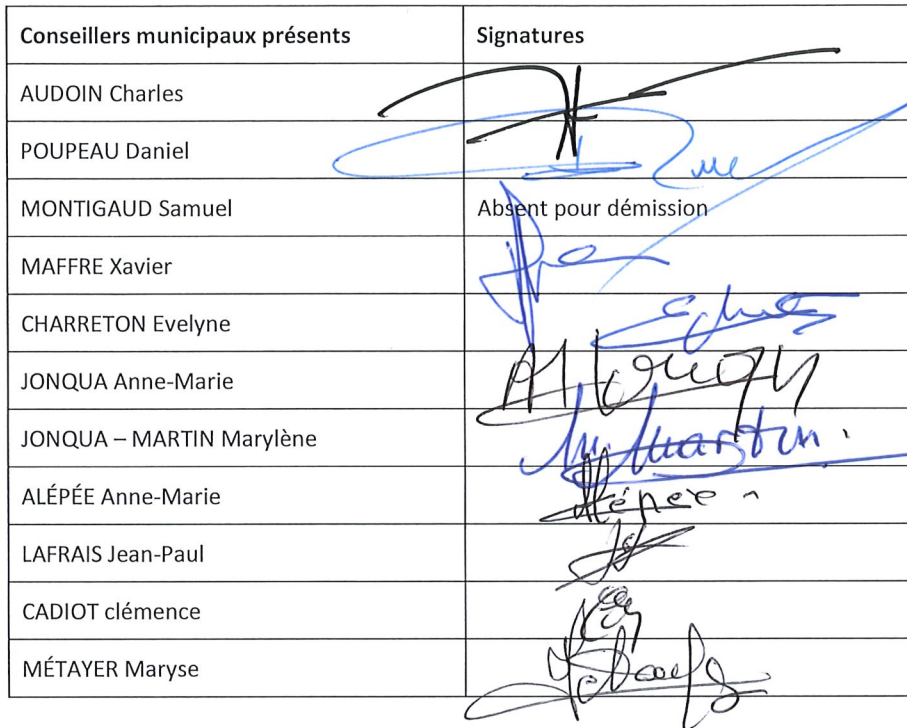 Conseillers municipaux présents Signatures
AUDOIN Charles
POUPEAU Daniel
MONTIGAUD Samuel Absent pour démission
MAFFRE Xavier
CHARRETON Evelyne
JONQUA Anne-Marie
JONQUA – MARTIN Marylène
ALÉPÉE Anne-Marie
LAFRAIS Jean-Paul
CADIOT clémence
MÉTAYER Maryse